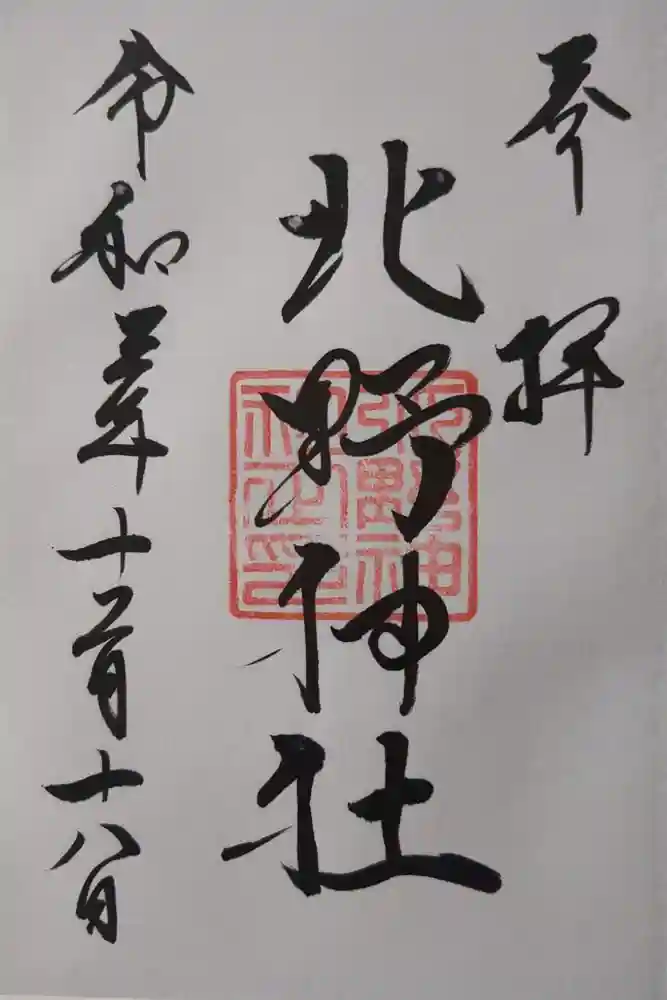 奉拝
北野神社
令和三年十二月十八日